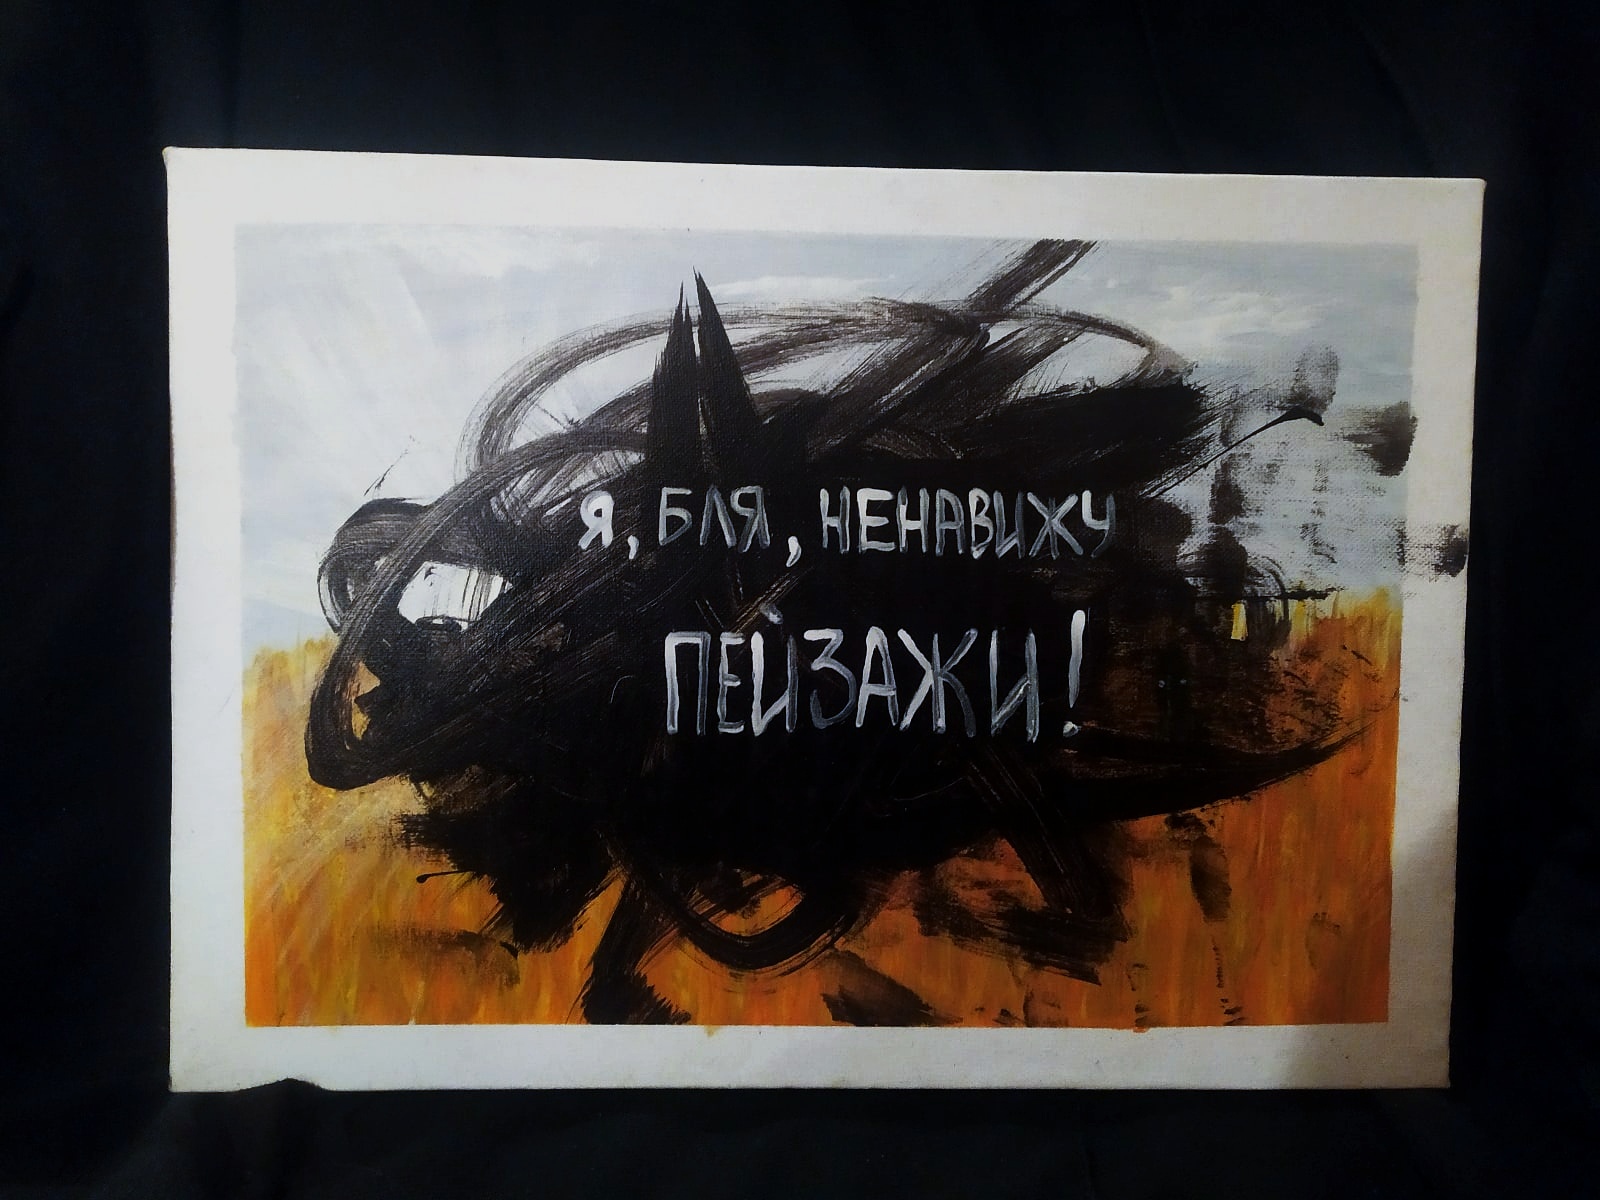 Я, БЛЯ, НЕНАВИЖУ
ПЕЙЗАЖИ!